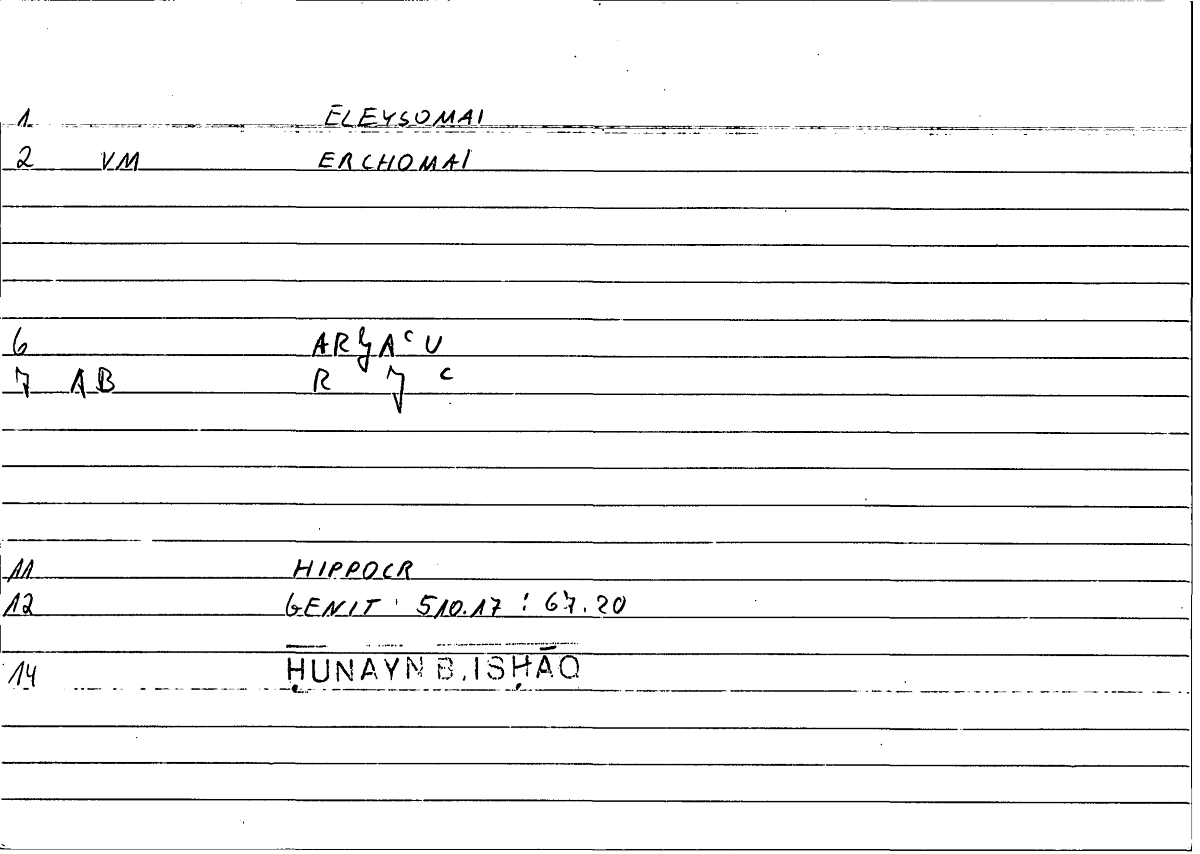 1 ELEYSOMAI
2 VM ERCHOMAI
6 ARĞAᶜU
7 AB R J ᶜ
11 HIPPOCR
12 GENIT : 510.17 : 67.20
14 ḤUNAYN B. ISḤĀQ